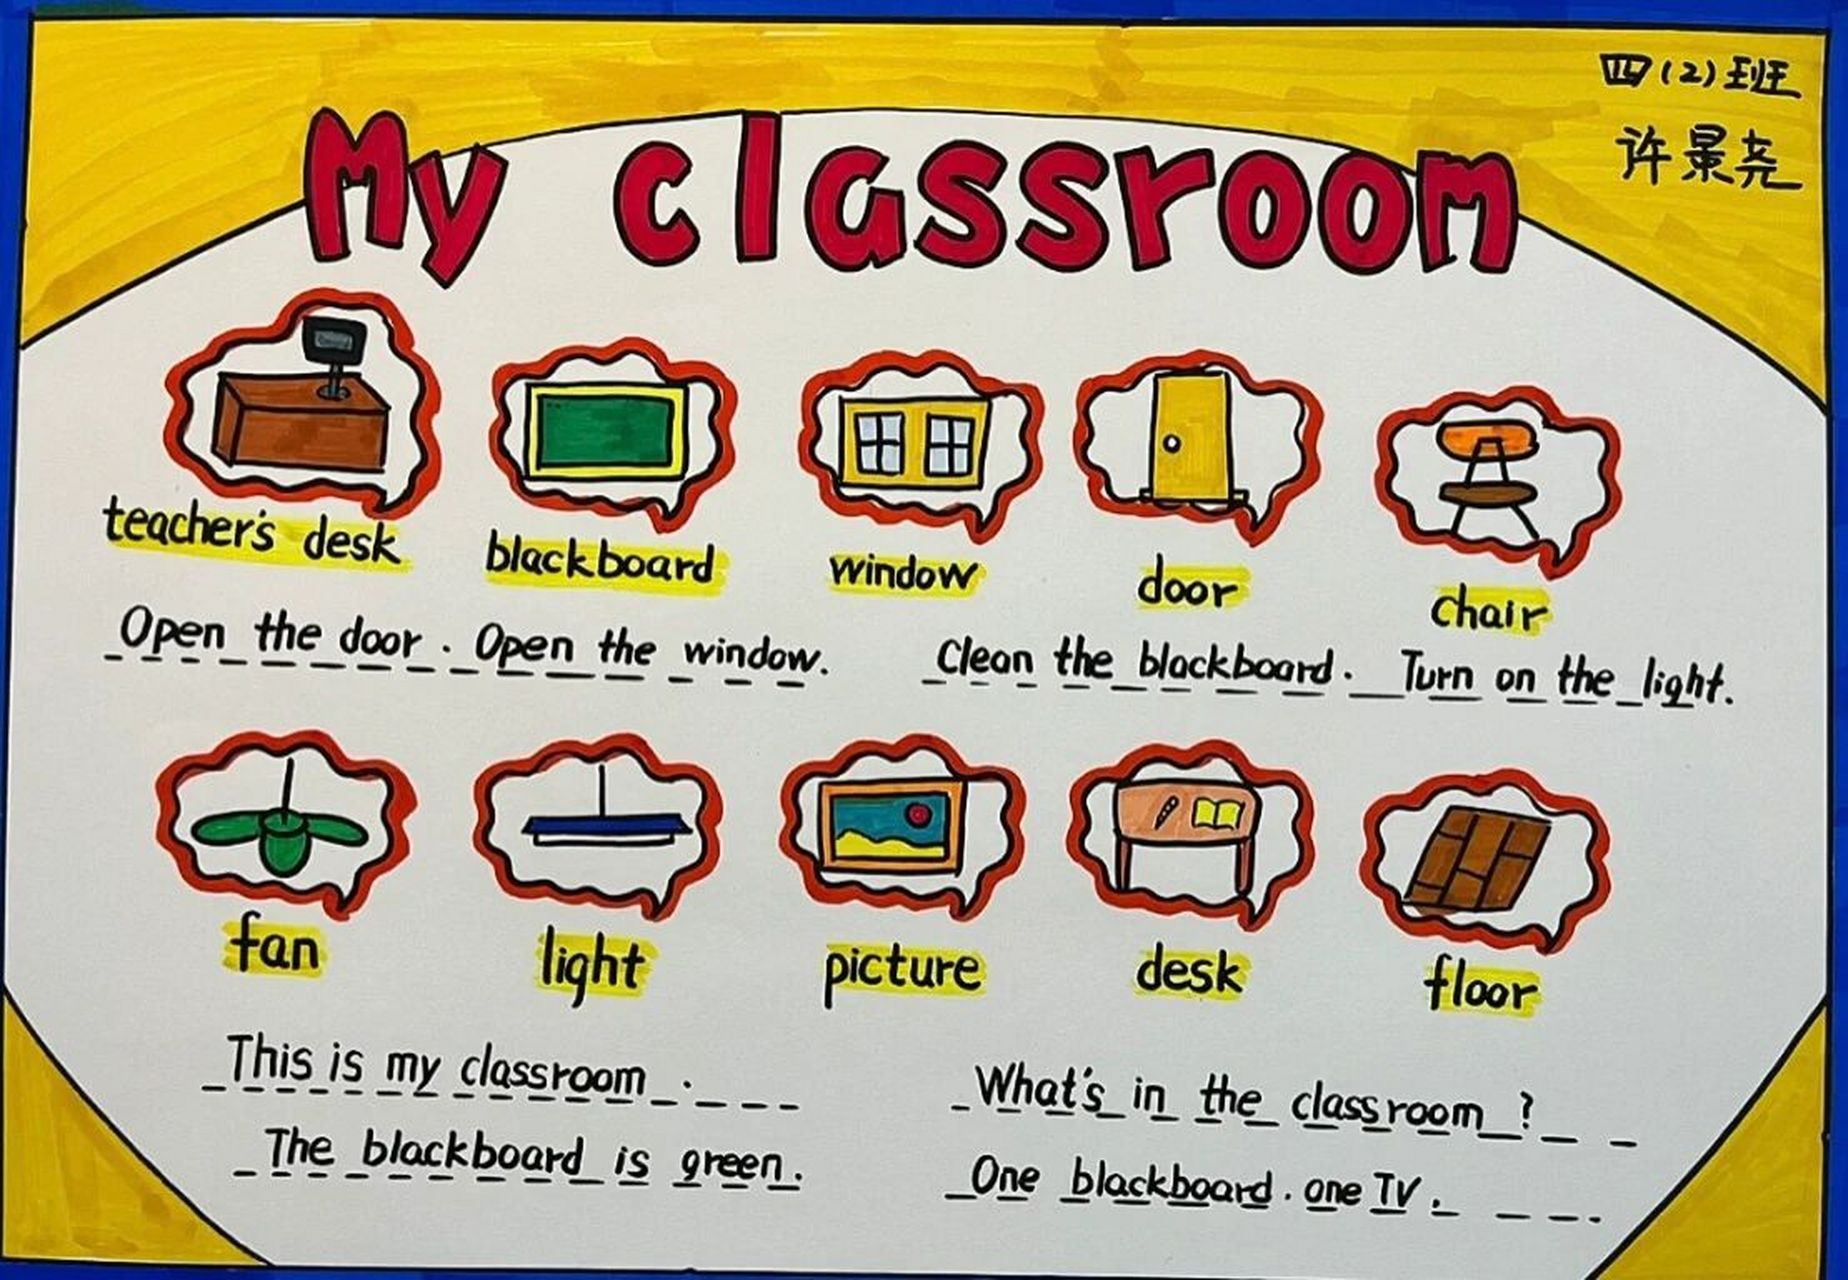 四(2)班
许景尧
My classroom
teacher's desk
blackboard
window
door
chair
Open the door. Open the window.
Clean the blackboard. Turn on the light.
fan
light
picture
desk
floor
This is my classroom.
What's in the classroom?
The blackboard is green.
One blackboard. one TV.